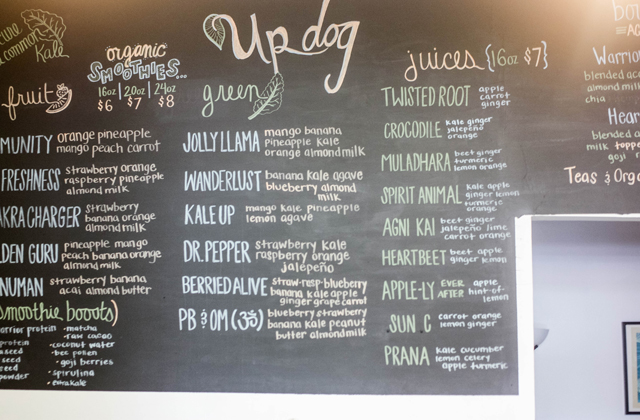 Up dog
common
Kale
organic
SMOOTHIES...
16oz | 20oz | 24oz
$6 $7 $8
fruit
MUNITY orange pineapple
mango peach carrot
FRESHNESS strawberry orange
raspberry pineapple
almond milk
AKRA CHARGER strawberry
banana orange
almond milk
LDEN GURU pineapple mango
peach banana orange
almond milk
NUMAN strawberry banana
acai almond butter
smoothie boosts)
arrior protein
protein
seed
seed
powder
- matcha
- raw cacao
- coconut water
- bee pollen
- goji berries
- spirulina
- emrakale
green
JOLLY LLAMA mango banana
pineapple kale
orange almond milk
WANDERLUST banana kale agave
blueberry almond
milk
KALE UP mango kale pineapple
lemon agave
DR. PEPPER strawberry kale
raspberry orange
jalapeño
BERRIED ALIVE straw-rasp-blueberry
banana kale apple
ginger grape carrot
PB & OM (ॐ) blueberry strawberry
banana kale peanut
butter almond milk
juices {16oz $7}
TWISTED ROOT apple
carrot
ginger
CROCODILE kale ginger
jalapeño
orange
MULADHARA beet ginger
turmeric
lemon orange
SPIRIT ANIMAL kale apple
ginger lemon
turmeric
orange
AGNI KAI beet ginger
jalapeño lime
carrot orange
HEARTBEET beet apple
ginger lemon
APPLE-LY EVER AFTER apple
hint-of-
lemon
SUN.C carrot orange
lemon ginger
PRANA kale cucumber
lemon celery
apple turmeric
bo
Warrio
blended ac
almond milk
chia
Hear
blended
milk topp
goji
Teas & Orga